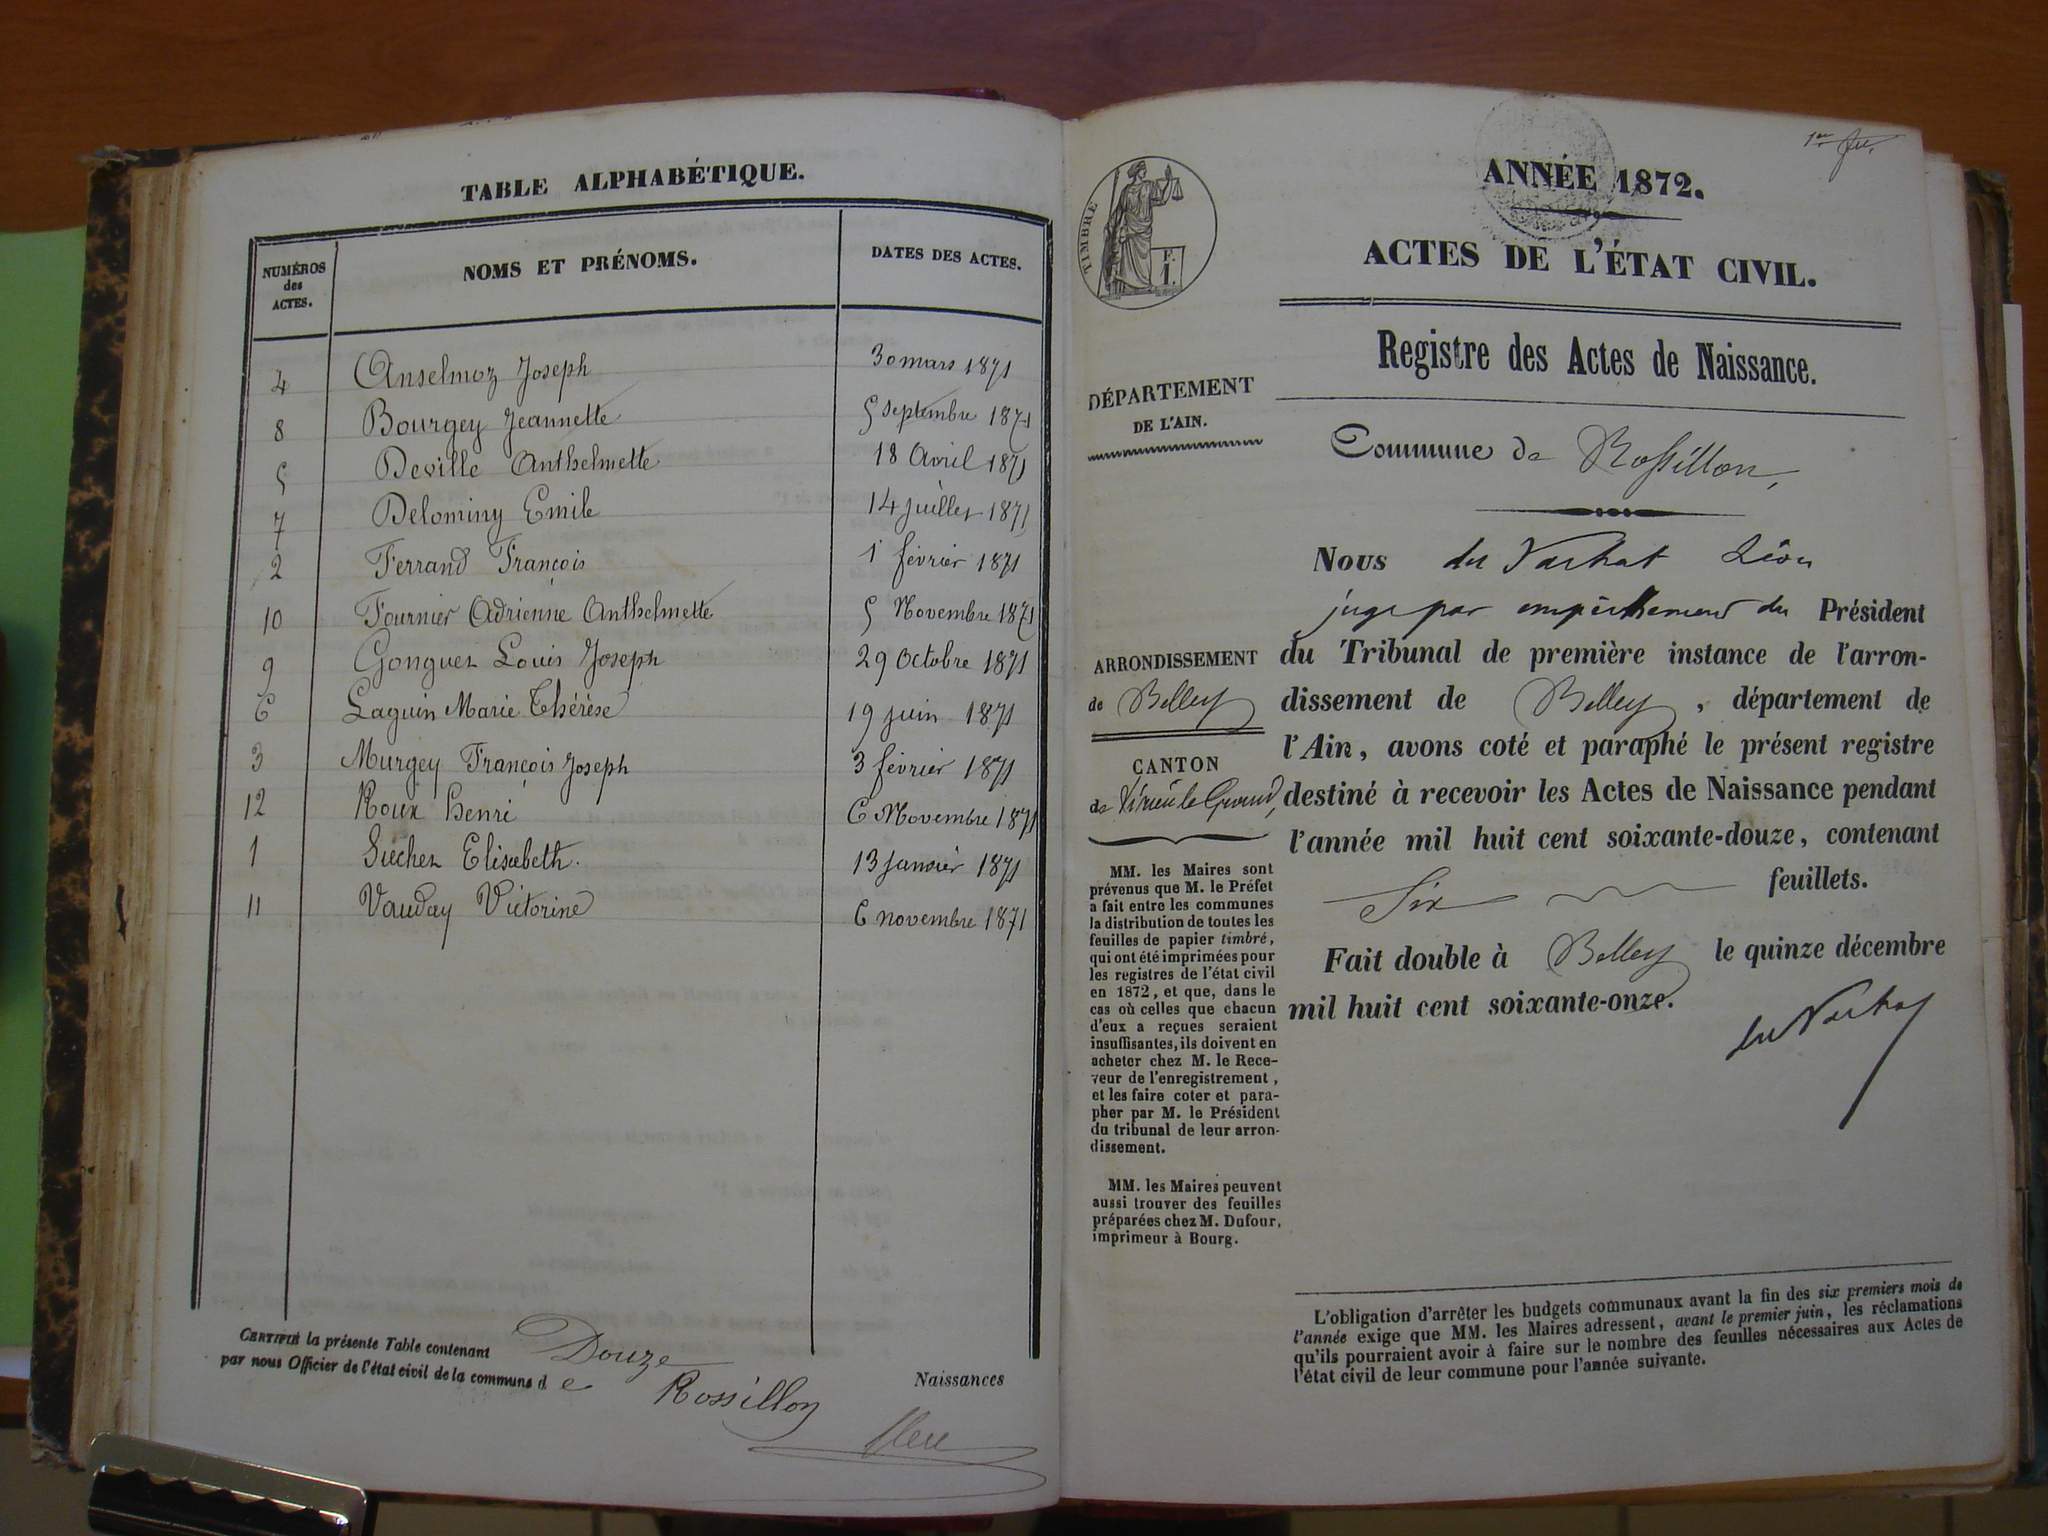 TABLE ALPHABÉTIQUE.
NUMÉROS des ACTES. NOMS ET PRÉNOMS. DATES DES ACTES.
4 Anselmoz Joseph 30 mars 1871
8 Bourgey Jeannette 5 septembre 1871
5 Deville Anthelmette 18 Avril 1871
7 Delominy Emile 14 juillet 1871
2 Ferrand François 1 février 1871
10 Fournier Adrienne Anthelmette 5 Novembre 1871
9 Gonguez Louis Joseph 29 Octobre 1871
6 Laguin Marie Thérèse 19 juin 1871
3 Murgey François Joseph 3 février 1871
12 Roux Henri 6 Novembre 1871
1 Suchez Elisabeth. 13 Janvier 1871
11 Vauday Victorine 6 novembre 1871
CERTIFIÉ la présente Table contenant Douze Naissances
par nous Officier de l'état civil de la commune de Rossillon
1er
ANNÉE 1872.
ACTES DE L'ÉTAT CIVIL.
TIMBRE
F. 1.
Registre des Actes de Naissance.
DÉPARTEMENT
DE L'AIN.
Commune de Rossillon,
Nous du Varhat Léon
juge par empêchement du Président
du Tribunal de première instance de l'arron-
dissement de Belley, département de
l'Ain, avons coté et paraphé le présent registre
destiné à recevoir les Actes de Naissance pendant
l'année mil huit cent soixante-douze, contenant
Six feuillets.
Fait double à Belley le quinze décembre
mil huit cent soixante-onze.
ARRONDISSEMENT
de Belley
CANTON
de Virieu le Grand,
MM. les Maires sont
prévenus que M. le Préfet
a fait entre les communes
la distribution de toutes les
feuilles de papier timbré,
qui ont été imprimées pour
les registres de l'état civil
en 1872, et que, dans le
cas où celles que chacun
d'eux a reçues seraient
insuffisantes, ils doivent en
acheter chez M. le Rece-
veur de l'enregistrement,
et les faire coter et para-
pher par M. le Président
du tribunal de leur arron-
dissement.
MM. les Maires peuvent
aussi trouver des feuilles
préparées chez M. Dufour,
imprimeur à Bourg.
L'obligation d'arrêter les budgets communaux avant la fin des six premiers mois de
l'année exige que MM. les Maires adressent, avant le premier juin, les réclamations
qu'ils pourraient avoir à faire sur le nombre des feuilles nécessaires aux Actes de
l'état civil de leur commune pour l'année suivante.